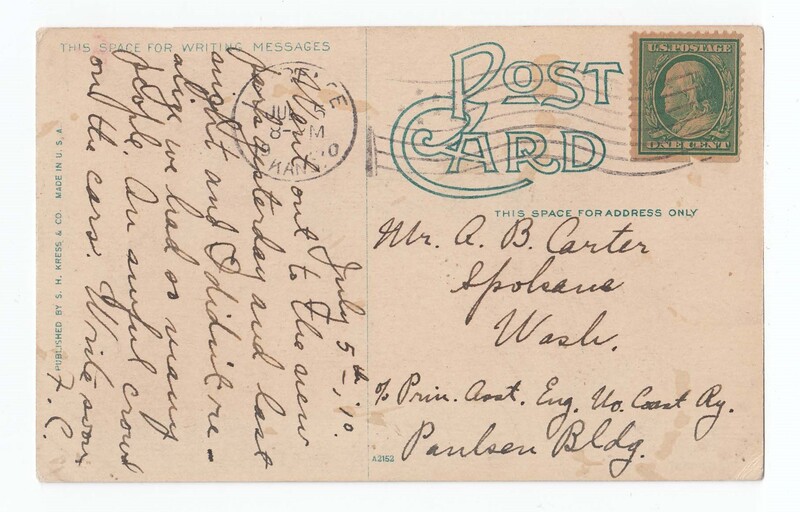 THIS SPACE FOR WRITING MESSAGES
POST
CARD
U.S. POSTAGE
ONE CENT
KANS.
THIS SPACE FOR ADDRESS ONLY
Mr. A. B. Carter
Spokane
Wash.
% Prin. Asst. Eng. No. Coast Ry.
Paulsen Bldg.
A2152
July 5th –, '10.
Went out to the new
yesterday and last
night and I didn't re-
alize we had so many
people. An awful crowd
on the cars. Write soon
F. C.
PUBLISHED BY S. H. KRESS & CO. MADE IN U. S. A.